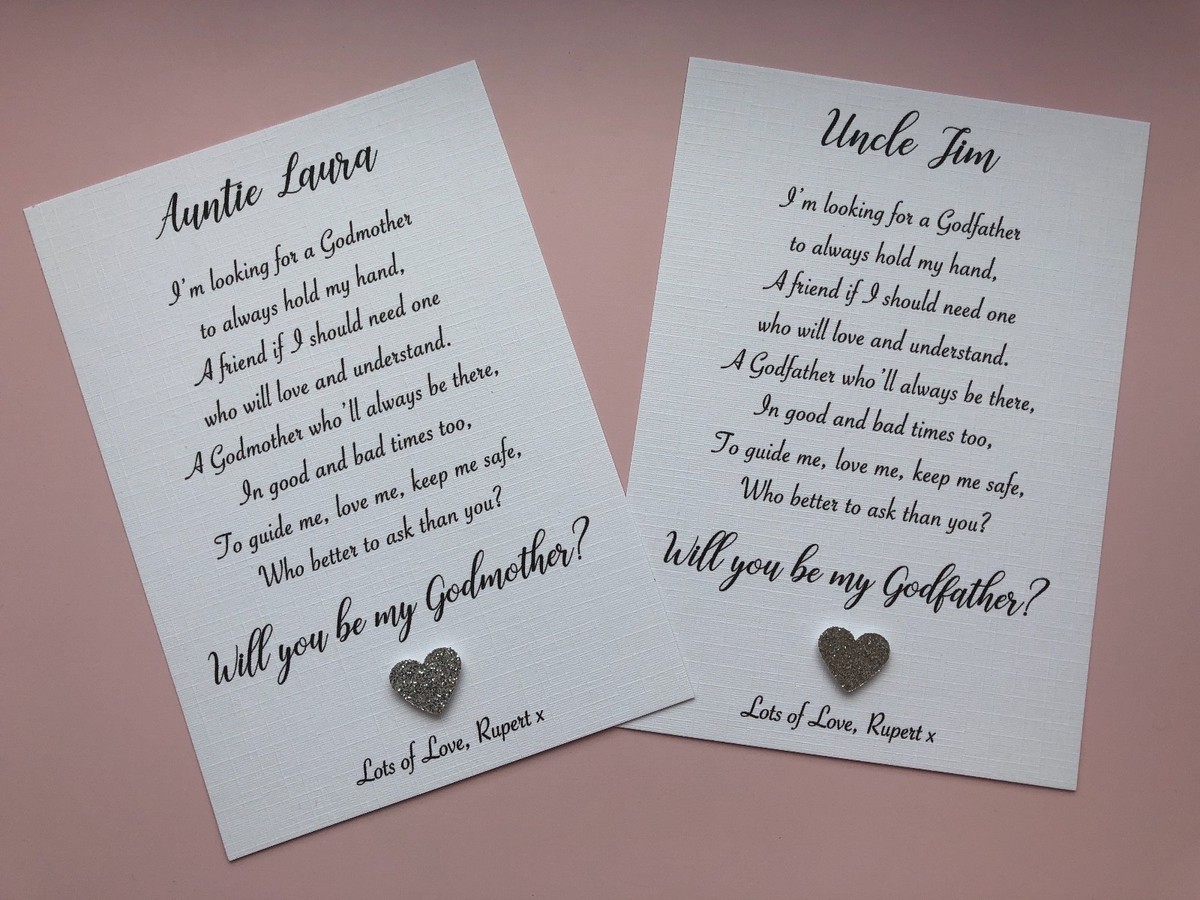 Auntie Laura
I'm looking for a Godmother
to always hold my hand,
A friend if I should need one
who will love and understand.
A Godmother who'll always be there,
In good and bad times too,
To guide me, love me, keep me safe,
Who better to ask than you?
Will you be my Godmother?
Lots of Love, Rupert x
Uncle Jim
I'm looking for a Godfather
to always hold my hand,
A friend if I should need one
who will love and understand.
A Godfather who'll always be there,
In good and bad times too,
To guide me, love me, keep me safe,
Who better to ask than you?
Will you be my Godfather?
Lots of Love, Rupert x